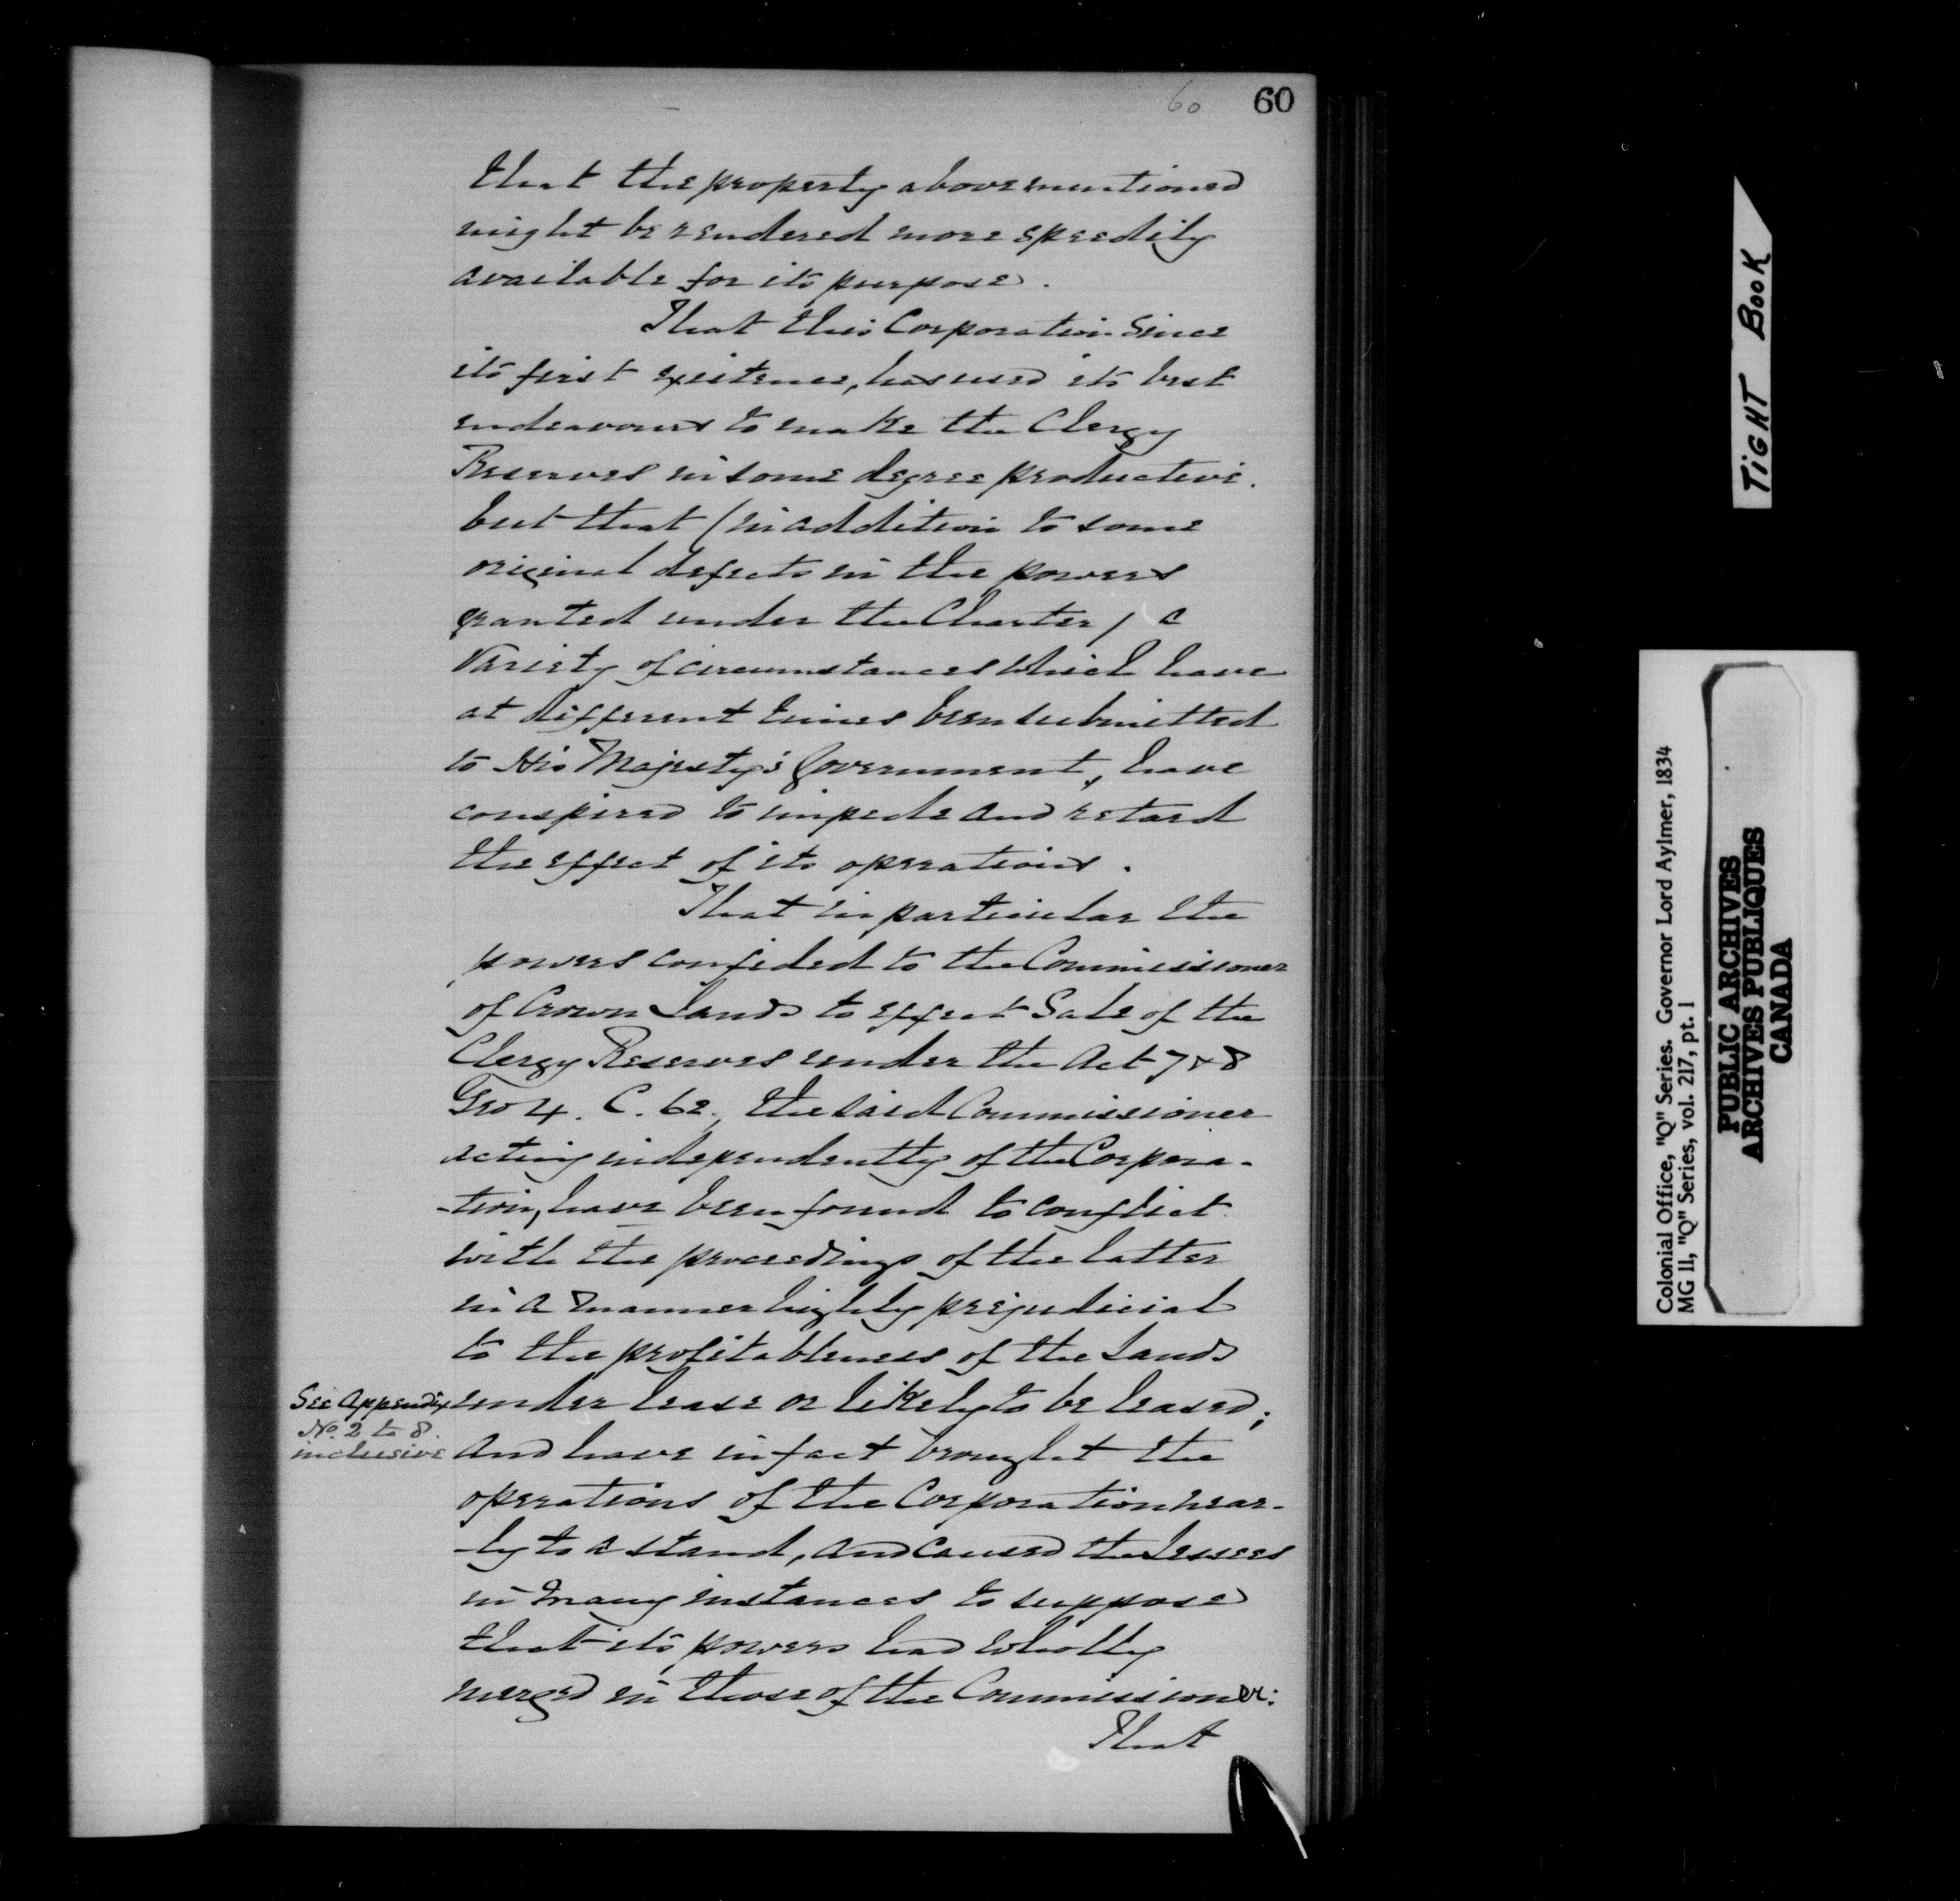 60 60
that the property above mentioned
might be rendered more speedily
available for its purpose.
That this Corporation Since
its first existence, has used its best
endeavours to make the Clergy
Reserves in some degree productive.
but that (in addition to some
original defects in the powers
granted under the Charter) a
Variety of circumstances which have
at different times been submitted
to His Majesty's Government, have
conspired to impede and retard
the effect of its operations.
That in particular the
powers confided to the Commissioner
of Crown Lands to effect Sale of the
Clergy Reserves under the Act 7 & 8
Geo 4. C. 62., the said Commissioner
acting independently of the Corpora-
-tion, have been found to conflict
with the proceedings of the latter
in a manner highly prejudicial
to the profitableness of the Lands
See Appendix
No. 2 to 8.
inclusive
under lease or likely to be leased;
and have in fact brought the
operations of the Corporation near-
-ly to a stand, and caused the Lessees
in many instances to suppose
that its powers had wholly
merged in those of the Commissioner:
That
TIGHT BOOK
Colonial Office, "Q" Series. Governor Lord Aylmer, 1834
MG 11, "Q" Series, vol. 217, pt. 1
PUBLIC ARCHIVES
ARCHIVES PUBLIQUES
CANADA